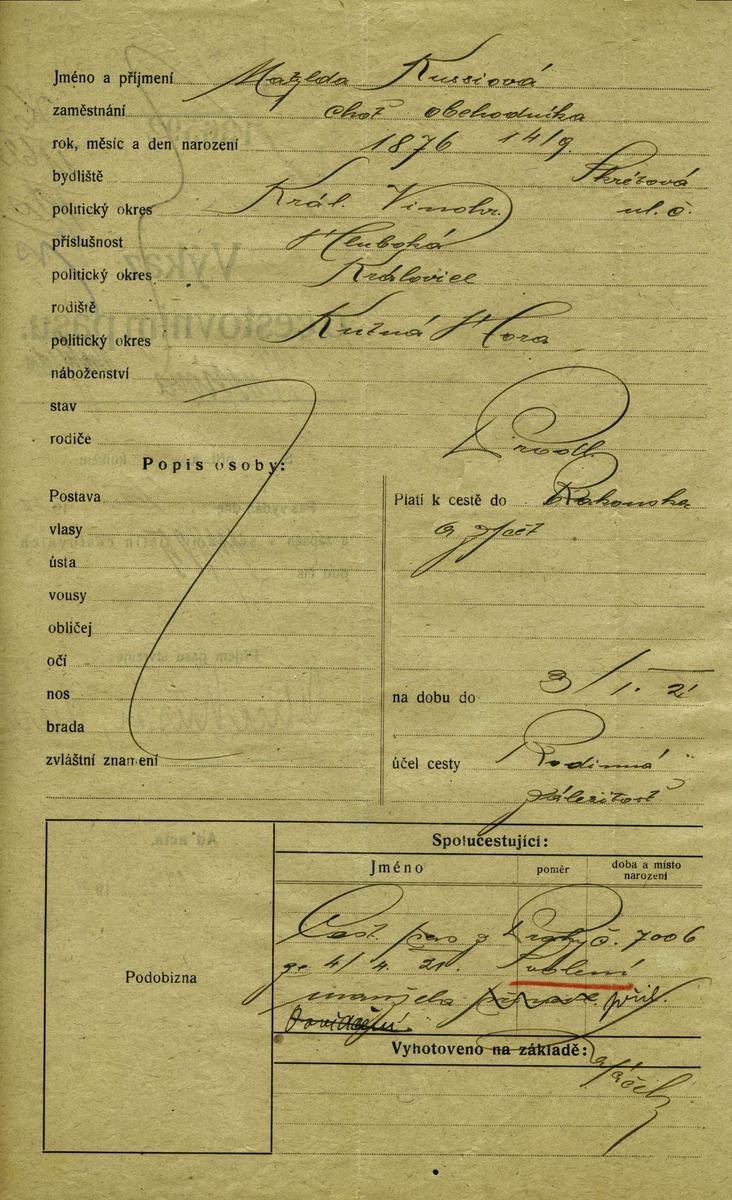 Jméno a příjmení Matylda Kussiová
zaměstnání choť obchodníka
rok, měsíc a den narození 1876 14/9
bydliště Škrétova
politický okres Král. Vinohr. ul. č.
příslušnost Hluboká
politický okres Kralovice
rodiště
politický okres Kutná Hora
náboženství
stav
rodiče Prodl.
Popis osoby:
Postava
vlasy
ústa
vousy
obličej
oči
nos
brada
zvláštní znamení
Platí k cestě do Rakouska
a zpět
na dobu do 3/1. 21
účel cesty Rodinná
záležitost
Podobizna
Spolucestující:
Jméno poměr doba a místo narození
Cest. pas z Prahy č. 7006
ze 4/4. 21. Svolení
manžela příl.
Vyhotoveno na základě: